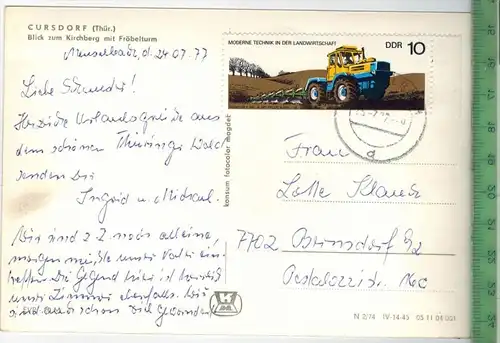 CURSDORF (Thür.)
Blick zum Kirchberg mit Fröbelturm
d. 24.07.77
Liebe
Herzliche Urlaubsgrüße aus
dem schönen Thüringer Wald
senden Dir
Ingrid u. Michael.
Wir sind z.Z. noch alleine,
morgen müßte unser Vater ein-
treffen. Die Gegend hier ist herrlich
unser Zimmer ebenfalls. Wir
schon die Gewandert
konsum fotocolor magdeburg
MODERNE TECHNIK IN DER LANDWIRTSCHAFT
DDR 10
Frau
Lotte
7702
N 2/74 IV-14-45 05 11 04 001